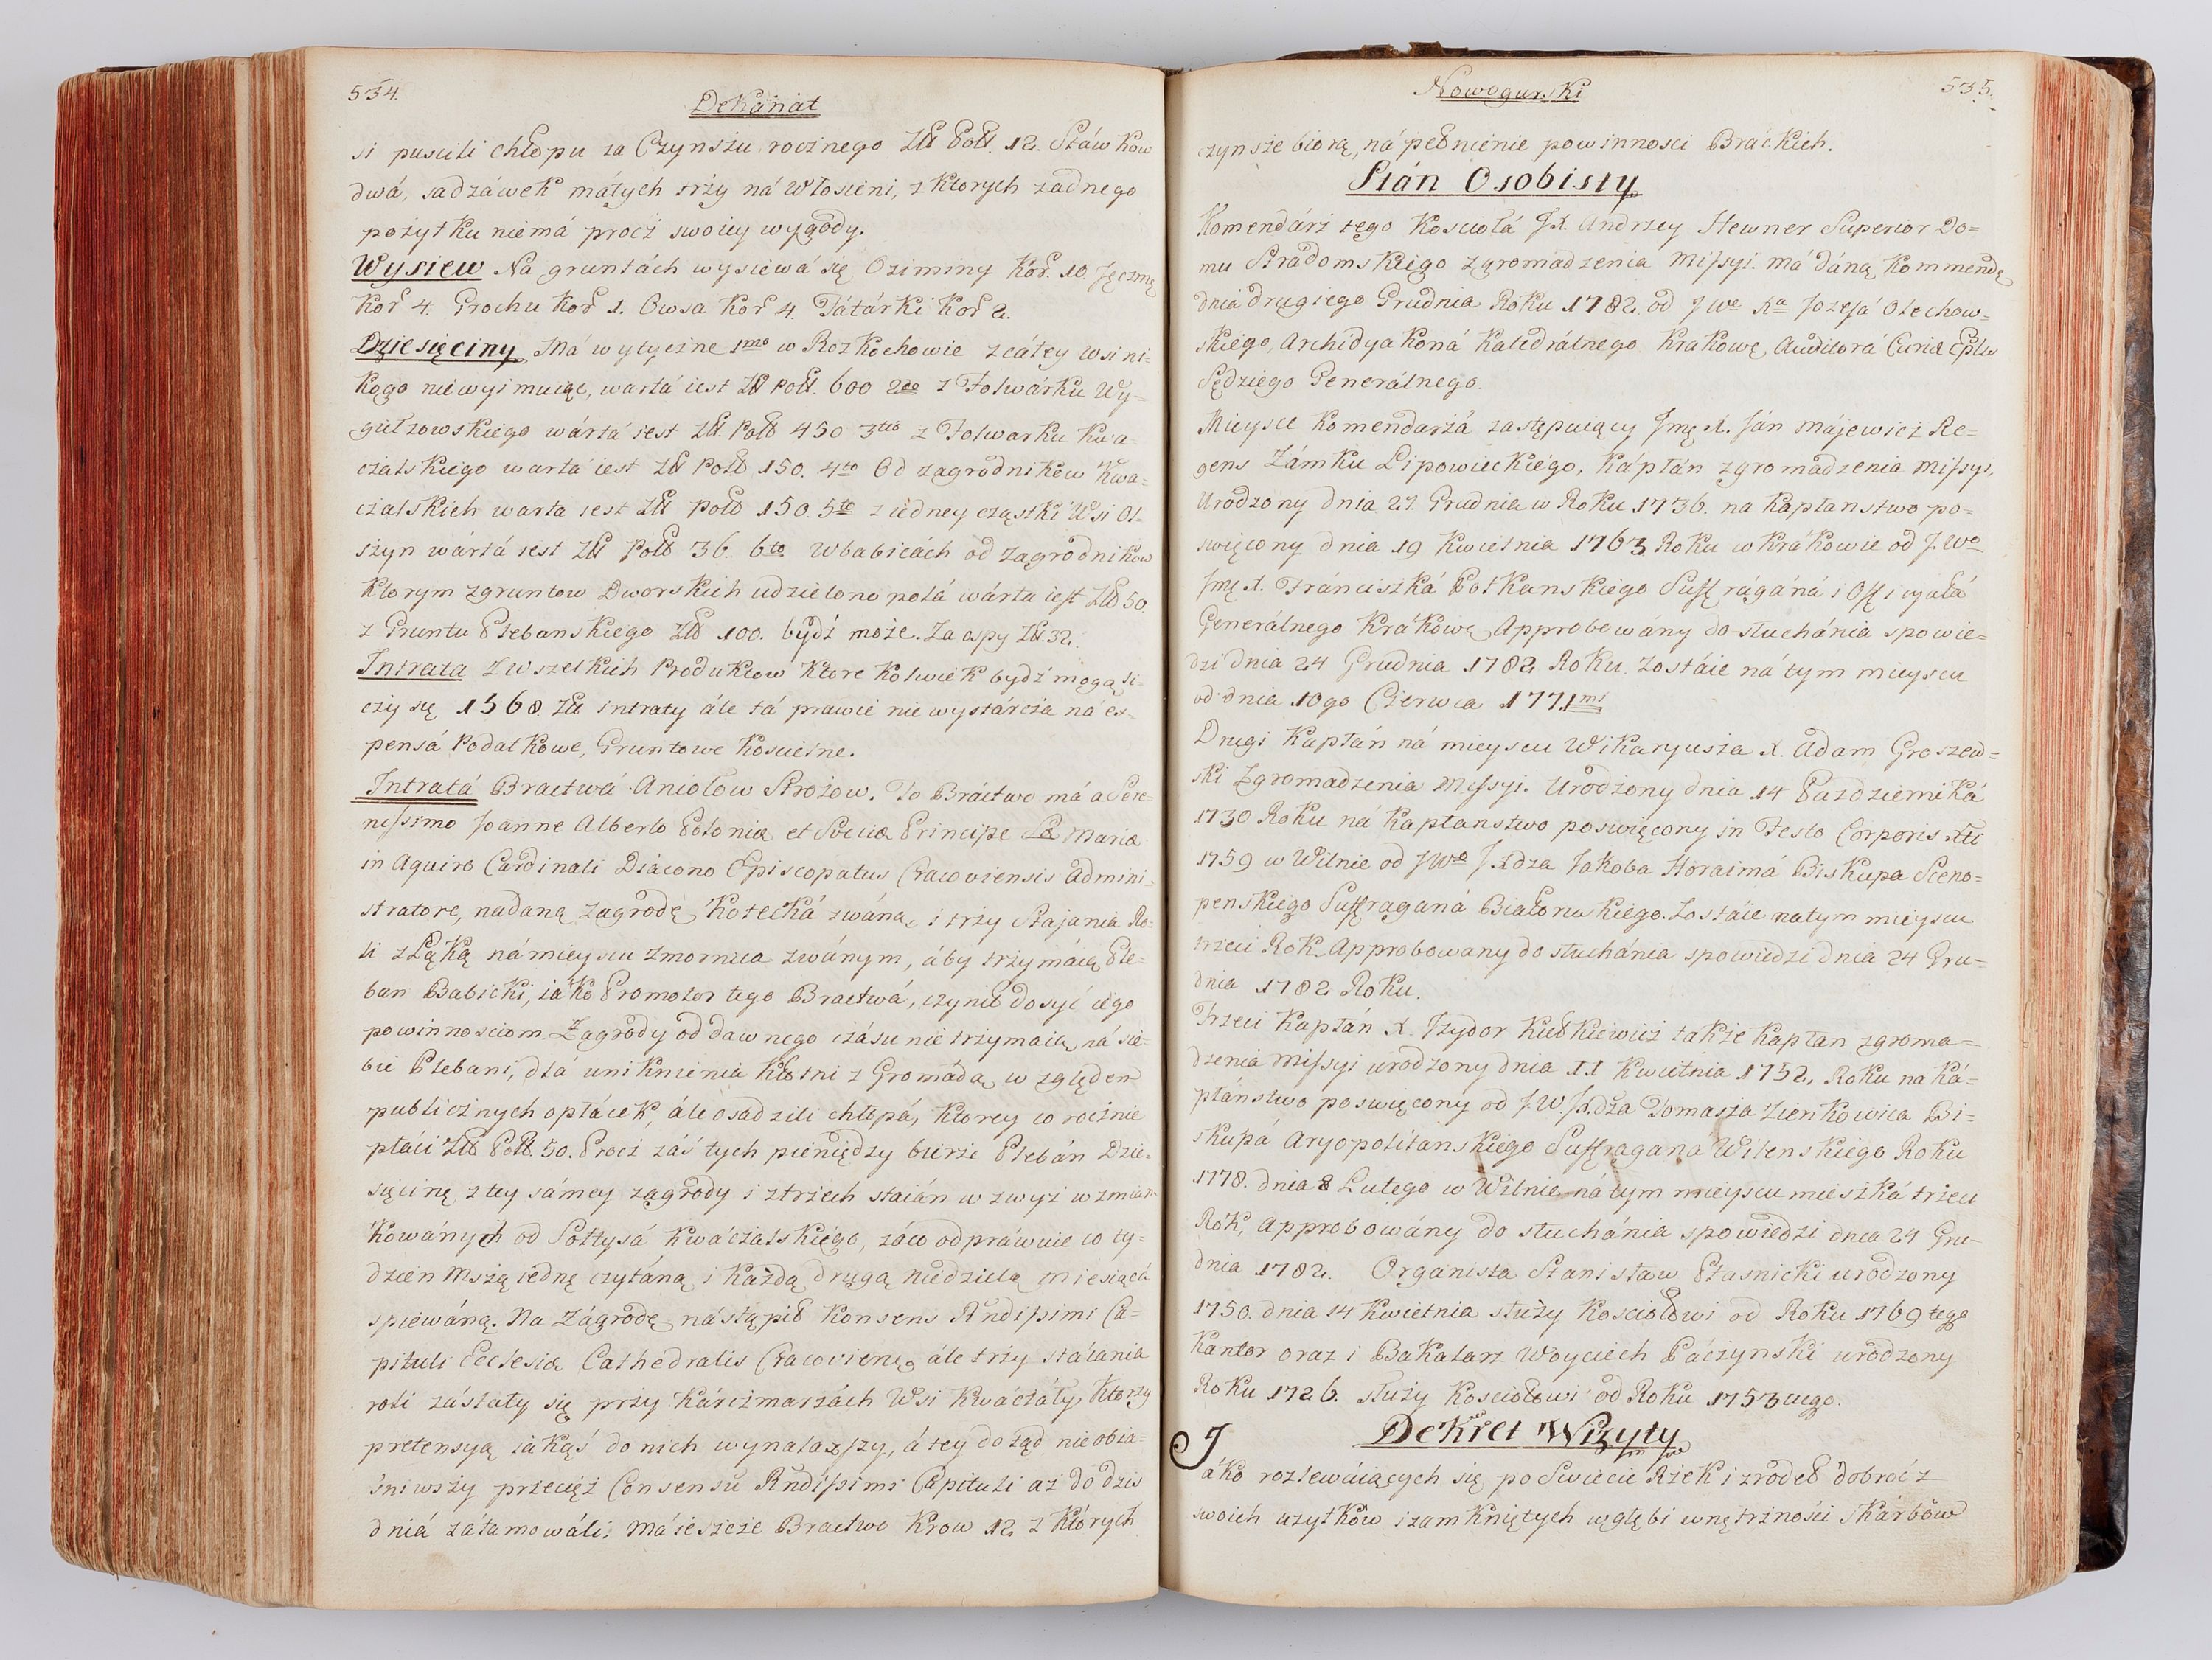 534.
Dekanat
si puscili chłopu za Czynszu rocznego Zł Poll. 12. Stáwkow
dwá, sadzáwek máłych trzy ná Włosieni, z ktorych zadnego
pożytku niemá procż swoiey wygody.
Wysiew Na gruntách wysiewá się Oziminy Kor. 10 Jęczmę
Kor 4. Grochu Kor 1. Owsa Kor 4. Tátárki Kor 2.
Dziesięciny Má wytyczne 1mo w Rozkochowie z cáłey wsi ni-
kogo niewyimuiąc, wartá iest Zł Poll. 600 2do z Folwárku Wy-
giełzowskiego wártá iest Zł. Poll 450 3tio z Folwarku Kwa-
czalskiego warta iest Zł Poll 150. 4to Od zagrodnikow Kwa-
czalskich warta iest Zł Poll 150. 5to z iedney cząstki Wsi Ol-
szyn wártá iest Zł Poll 36. 6to Wbabicách od Zagrodnikow
ktorym zgruntow Dworskich udzielono polá wárta iest Zł 50.
z Gruntu Plebanskiego Zł 100. bydź może. Za ospy Zł. 32.
Intrata Zwszelkich Produktow ktore kolwiek bydź mogą li-
czy się 1568. Zł intraty ále tá prawie nie wystárcza ná ex-
pensá Podatkowe, Gruntowe Koscielne.
Intratá Bractwá Aniołow Strożow. To Bráctwo má a Sere-
nissimo Joanne Alberto Poloniæ et Sveciæ Principe Sæ Mariæ
in Aquiro Cardinali Diácono Episcopatus Cracoviensis Admini-
stratore, nadaną zagrodę Kotecká zwáną, i trzy Stajania Ro-
li z Łąką námieyscu Zmornica zwánym, áby trzymáią Ple-
ban Babicki, iáko Promotor tego Bractwá, czynił dosyć iego
powinnosciom. Zagrody od dawnego czásu nie trzymaią ná sie-
bie Plebani, dlá uniknienia Kłotni z Gromádą, w zględem
publicznych opłácek, ále osadzili chłopá, ktorey co rocznie
płáci Zł Poll. 50. Procz záś tych pieniędzy bierze Plebán Dzie-
sięcinę z tey sámey zagrody i ztrzech staián w zwyż wzmian-
kowánych od Sołtysá Kwáczalskiégo, záco odpráwuie co ty-
dzien Mszą iednę czytáną i Każdą drugą niedzielą miesiąca
spiewáną. Na Zágrodę nástąpił Konsens Rndissimi Ca-
pituli Ecclesiæ Cathedralis Cracovienę, ále trzy stáiania
roli zástały się przy Kárczmarzách Wsi Kwáczáły, ktorzy
pretensyą iakąś do nich wynalazszy, á tey dotąd nieobia-
śniwszy przecięż Consensu Rndissimi Capituli aż do dzis
dniá zátamowáli; Má ieszcze Bractwo Krow 12 z których
Nowogurski
535.
czynsze biorą, ná pełnienie powinnosci Bráckich.
Stán Osobisty
Komendárz tego Kosciołá JX. Andrzey Hewner Superior Do=
mu Stradomskiego zgromadzenia Missyi. má dáną Kommendę
dnia drugiego Grudnia Roku 1782. od JWo Xa Jozefá Olechow-
skiego, Archidyakoná Katedrálnego Krakowę, Auditorá Curiæ Eplis
Sędziego Generálnego.
Mieysce Komendarzá zastępuiący Jmę X. Ján Májewicz Re=
gens Zámku Lipowieckiégo, Káptán zgromádzenia Missyi.
Urodzony dnia 27. Grudnia w Roku 1736. na Kapłanstwo po=
swięcony dnia 19 Kwietnia 1763 Roku w Krákowie od J. Wo
Jmę X. Fránciszká Potkanskiego Suffrágáná i Offi cyałá
Generálnego Krákowę Approbowány do słuchánia spowie=
dzi dnia 24 Grudnia 1782 Roku. Zostáie ná tym mieyscu
od dnia 10go Czerwca 1771mi
Drugi Kapłán ná mieyscu Wikaryusza X. Adam Groszew=
ski Zgromadzenia Missyi. Urodzony dnia 14 Pazdziernika
1730 Roku ná Kapłanstwo poswięcony in Festo Corporis Xti
1759 w Wilnie od JWo J.Xdza Jakoba Horaimá Biskupa Sceno=
penskiego Suffraganá Białoruskiego. Zostáie natym mieyscu
trzeci Rok Approbowany do słuchánia spowiedzi dnia 24 Gru-
dnia 1782 Roku.
Trzeci Kapłán X. Jzydor Kiełkiewicz także Kapłan zgroma=
dzenia Missyi urodzony dnia 11 Kwietnia 1752, Roku na Ká=
płáństwo poswięcony od J W. J.Xdza Tomasza Zienkowica Bi=
skupá Aryopolitanskiego Suffragana Wilenskiego Roku
1778. dnia 8 Lutego w Wilnie ná tym mieyscu mieszká trzeci
Rok, Approbowány do słuchánia spowiedzi dnia 24 Gru-
dnia 1782. Organista Stanisław Ptasnicki urodzony
1750. dnia 14 Kwietnia służy Kosciołowi od Roku 1769 tego
Kantor oraz i Bakałarz Woyciech Páczynski urodzony
Roku 1726. służy Kosciołowi od Roku 1753ciego.
Dekret Wizyty
Jáko rozlewáiących się po Swiecie Rzek i zrodeł dobroć z
swoich użytków i zamkniętych w głębi wnętrzności Skárbów